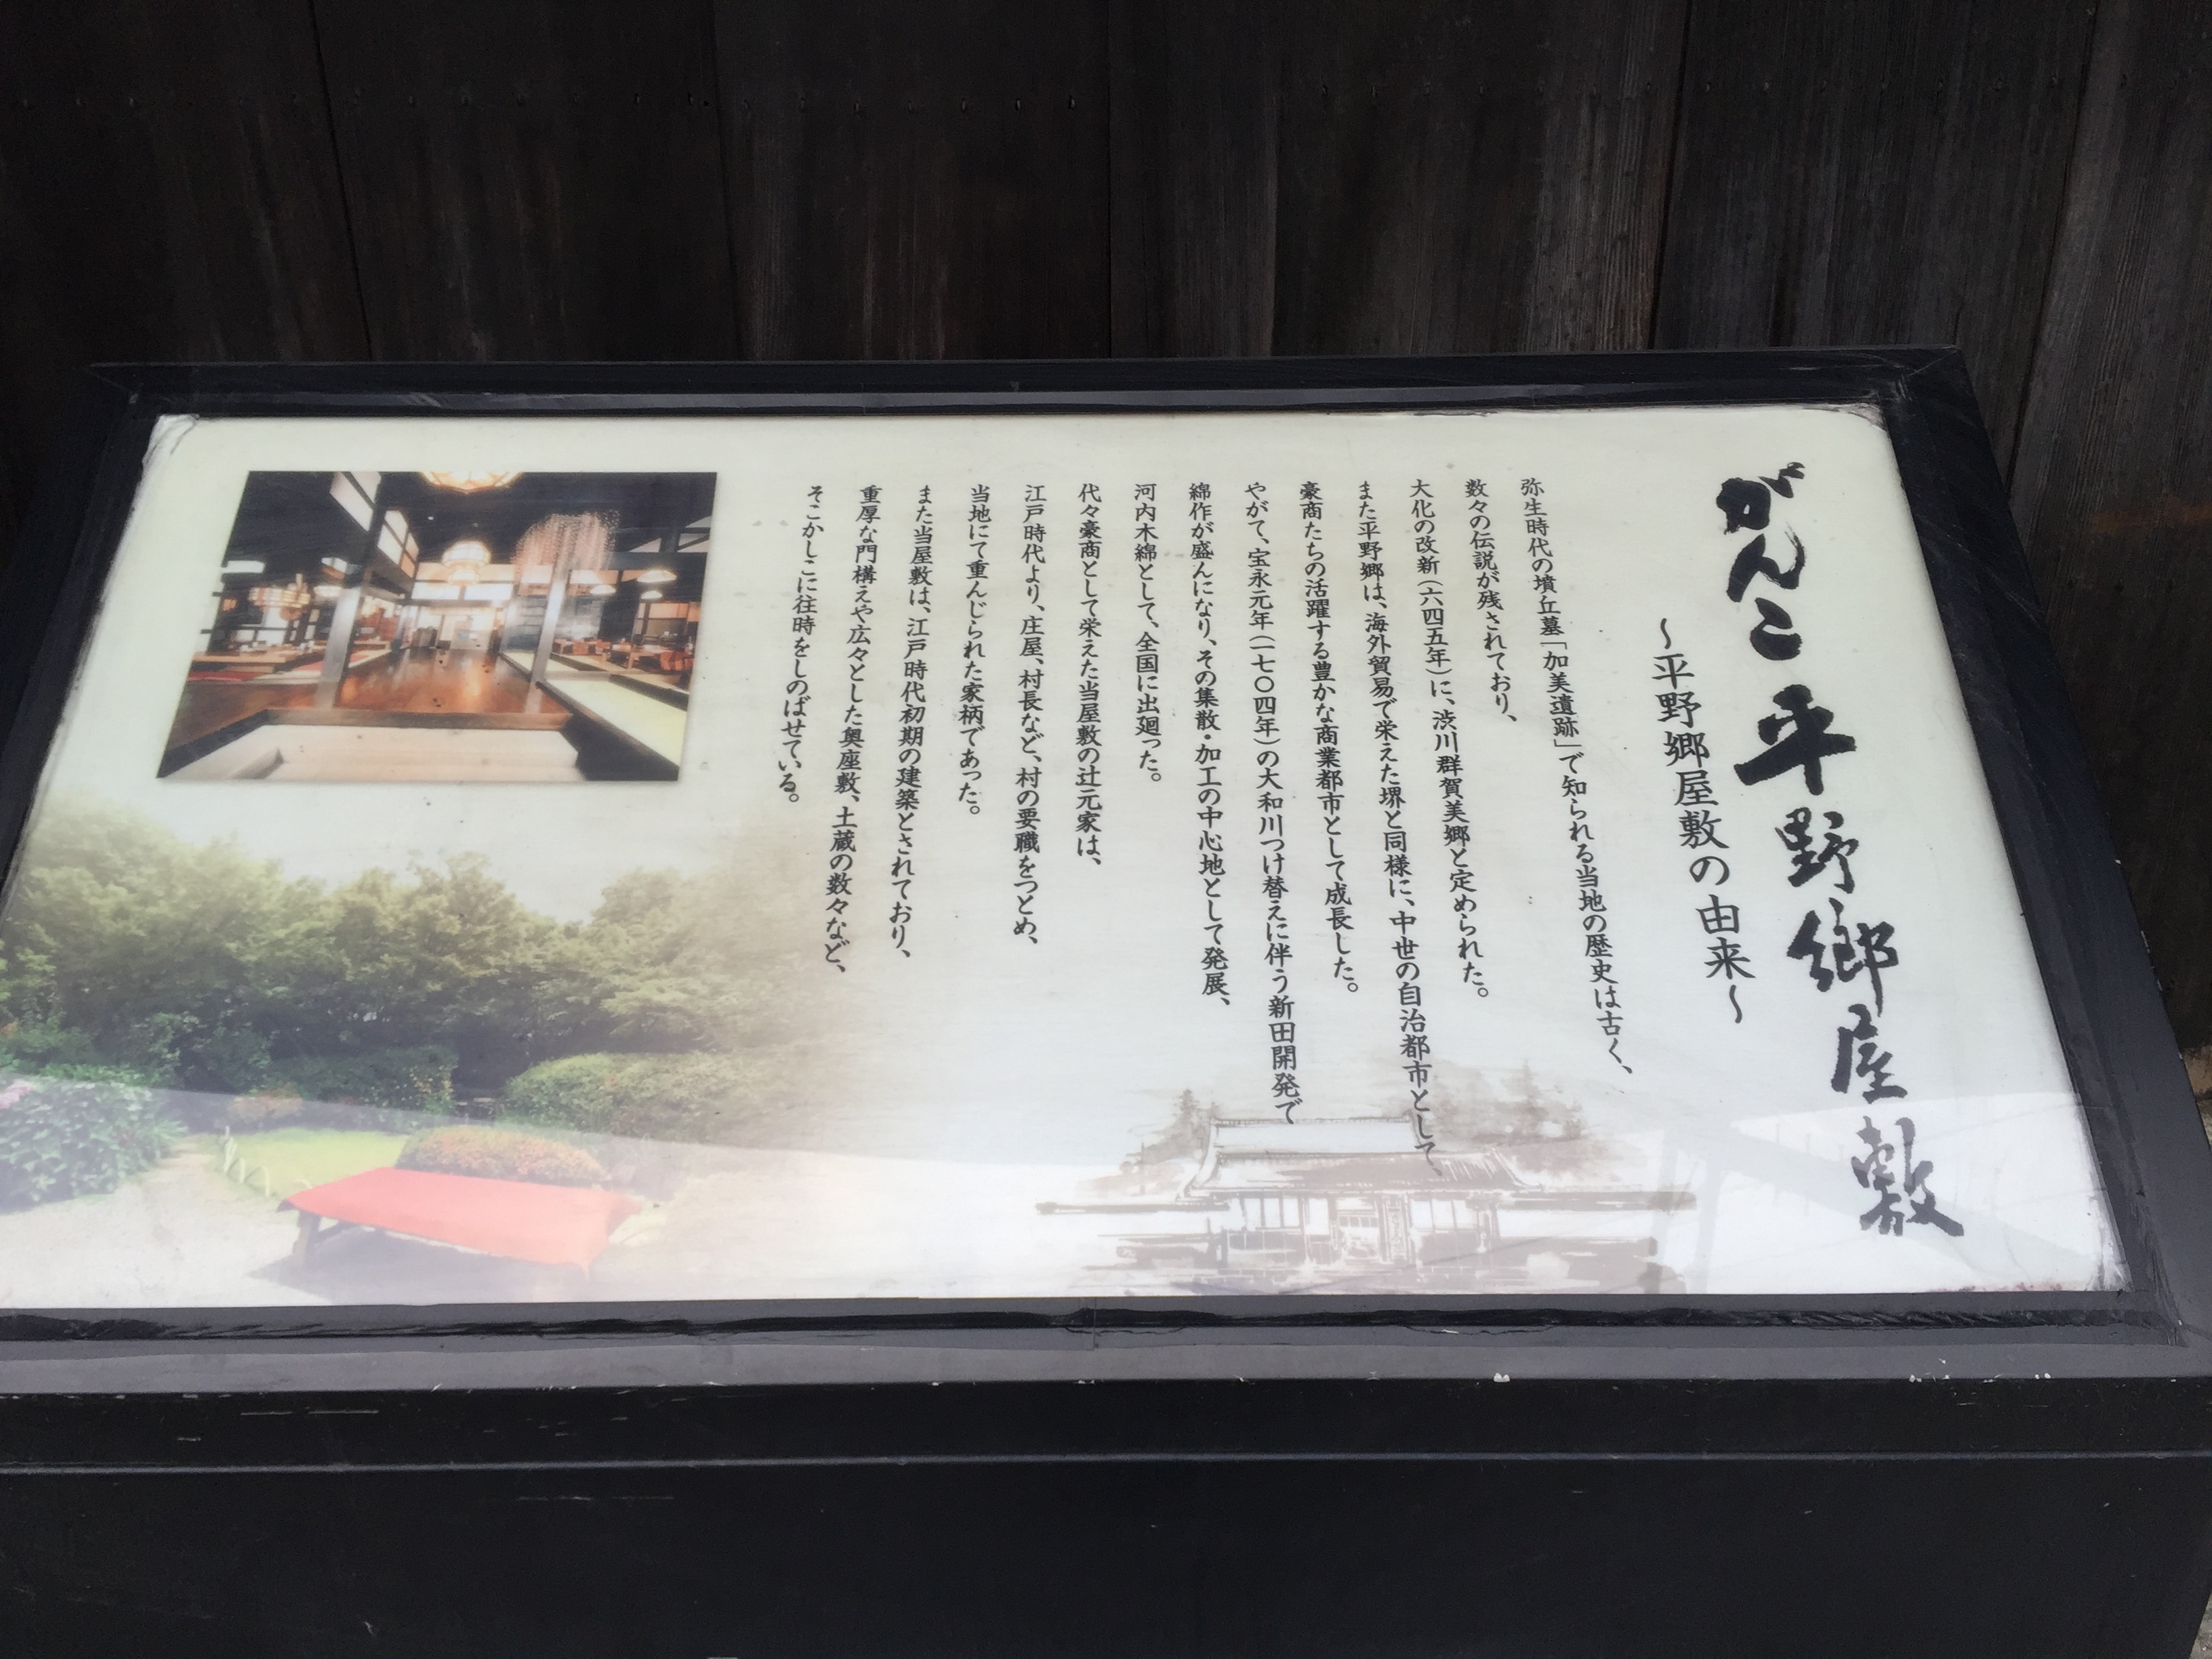 がんこ平野郷屋敷
～平野郷屋敷の由来～
弥生時代の墳丘墓「加美遺跡」で知られる当地の歴史は古く、
数々の伝説が残されており、
大化の改新（六四五年）に、渋川群賀美郷と定められた。
また平野郷は、海外貿易で栄えた堺と同様に、中世の自治都市として、
豪商たちの活躍する豊かな商業都市として成長した。
やがて、宝永元年（一七〇四年）の大和川つけ替えに伴う新田開発で
綿作が盛んになり、その集散・加工の中心地として発展、
河内木綿として、全国に出廻った。
代々豪商として栄えた当屋敷の辻元家は、
江戸時代より、庄屋、村長など、村の要職をつとめ、
当地にて重んじられた家柄であった。
また当屋敷は、江戸時代初期の建築とされており、
重厚な門構えや広々とした奥座敷、土蔵の数々など、
そこかしこに往時をしのばせている。